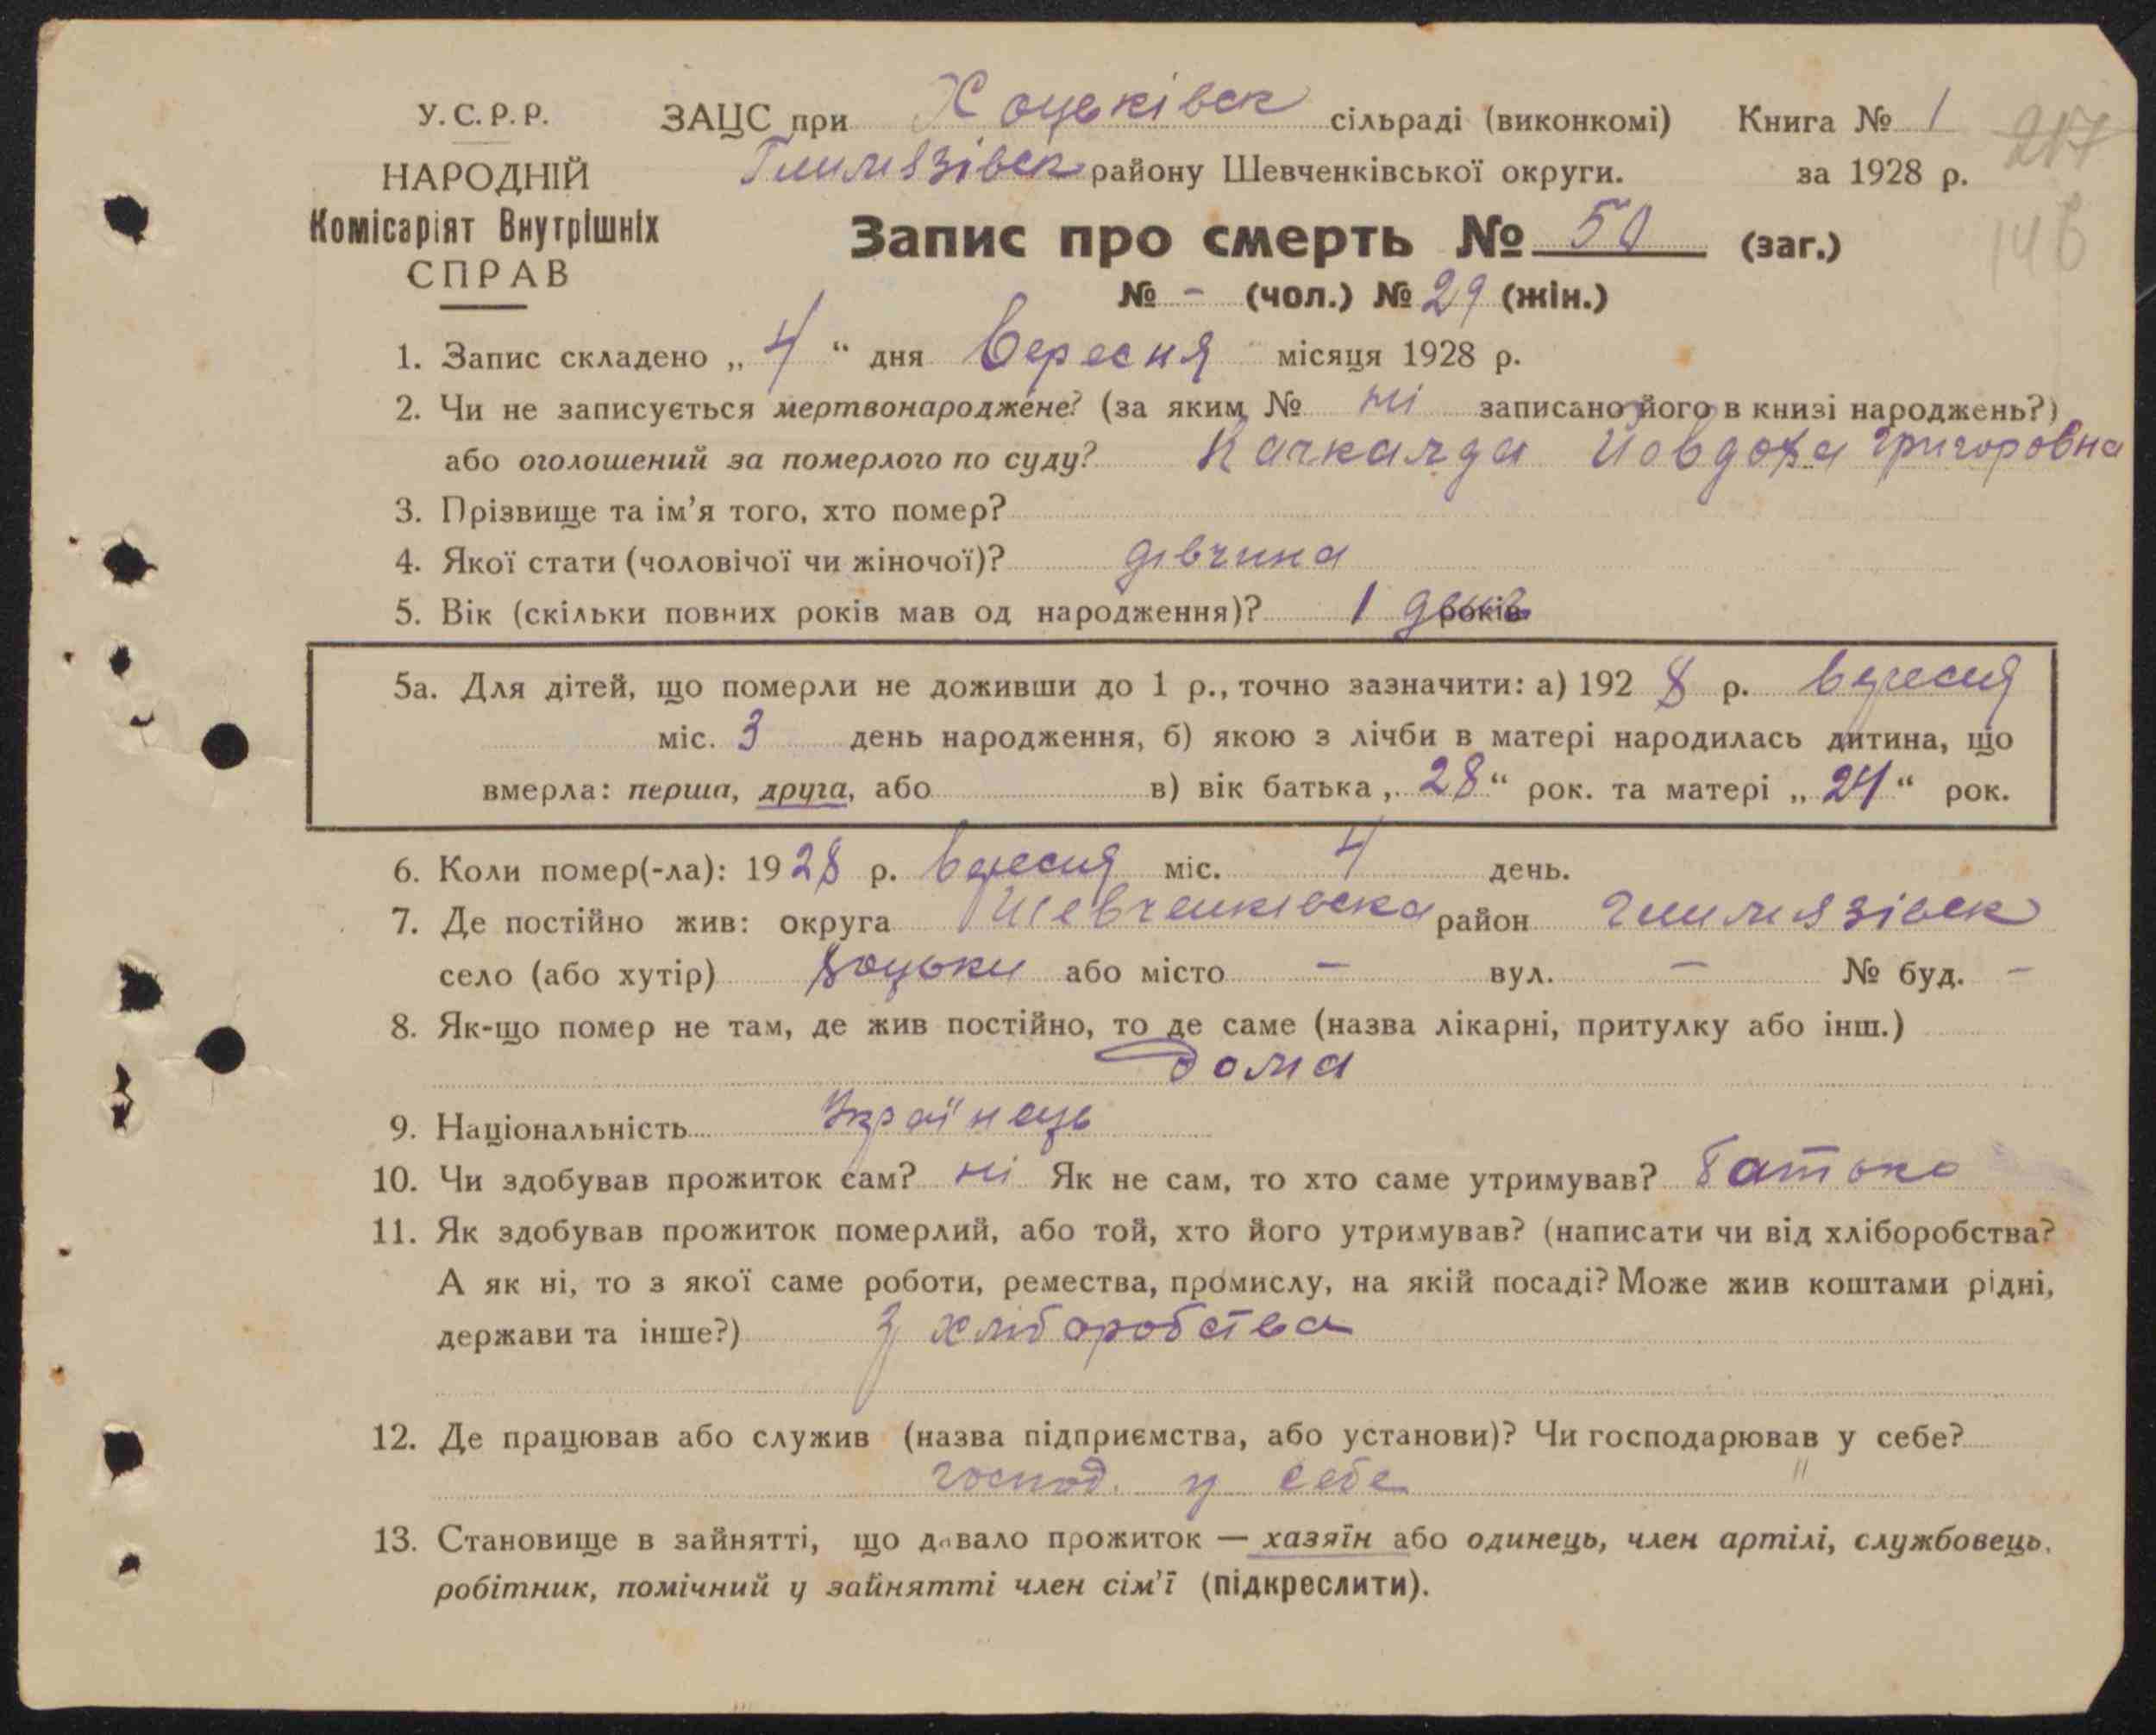 У.С.Р.Р. ЗАЦС при Хоцьківск сільраді (виконкомі) Книга № 1 217
НАРОДНІЙ Гельмязівск району Шевченківської округи. за 1928 р.
Комісаріят Внутрішніх Запис про смерть № 50 (заг.) 146
СПРАВ № - (чол.) № 29 (жін.)
1. Запис складено „ 4 “ дня Вересня місяця 1928 р.
2. Чи не записується мертвонароджене? (за яким № ні записано його в книзі народжень?)
або оголошений за померлого по суду? Качкалда Йовдоха Григоровна
3. Прізвище та ім’я того, хто помер?
4. Якої стати (чоловічої чи жіночої)? дівчина
5. Вік (скільки повних років мав од народження)? 1 день років
5а. Для дітей, що померли не доживши до 1 р., точно зазначити: а) 192 8 р. вересня
міс. 3 день народження, б) якою з лічби в матері народилась дитина, що
вмерла: перша, друга, або в) вік батька „ 28 “ рок. та матері „ 24 “ рок.
6. Коли помер(-ла): 19 28 р. вересня міс. 4 день.
7. Де постійно жив: округа Шевченківска район Гельмязівск
село (або хутір) Хоцьки або місто – вул. – № буд. –
8. Як-що помер не там, де жив постійно, то де саме (назва лікарні, притулку або інш.)
дома
9. Національність Українець
10. Чи здобував прожиток сам? ні Як не сам, то хто саме утримував? батько
11. Як здобував прожиток померлий, або той, хто його утримував? (написати чи від хліборобства?
А як ні, то з якої саме роботи, ремества, промислу, на якій посаді? Може жив коштами рідні,
держави та інше?) З хліборобства
12. Де працював або служив (назва підприємства, або установи)? Чи господарював у себе?
господ. у себе
13. Становище в зайнятті, що давало прожиток — хазяїн або одинець, член артілі, службовець,
робітник, помічний у зайнятті член сім’ї (підкреслити).